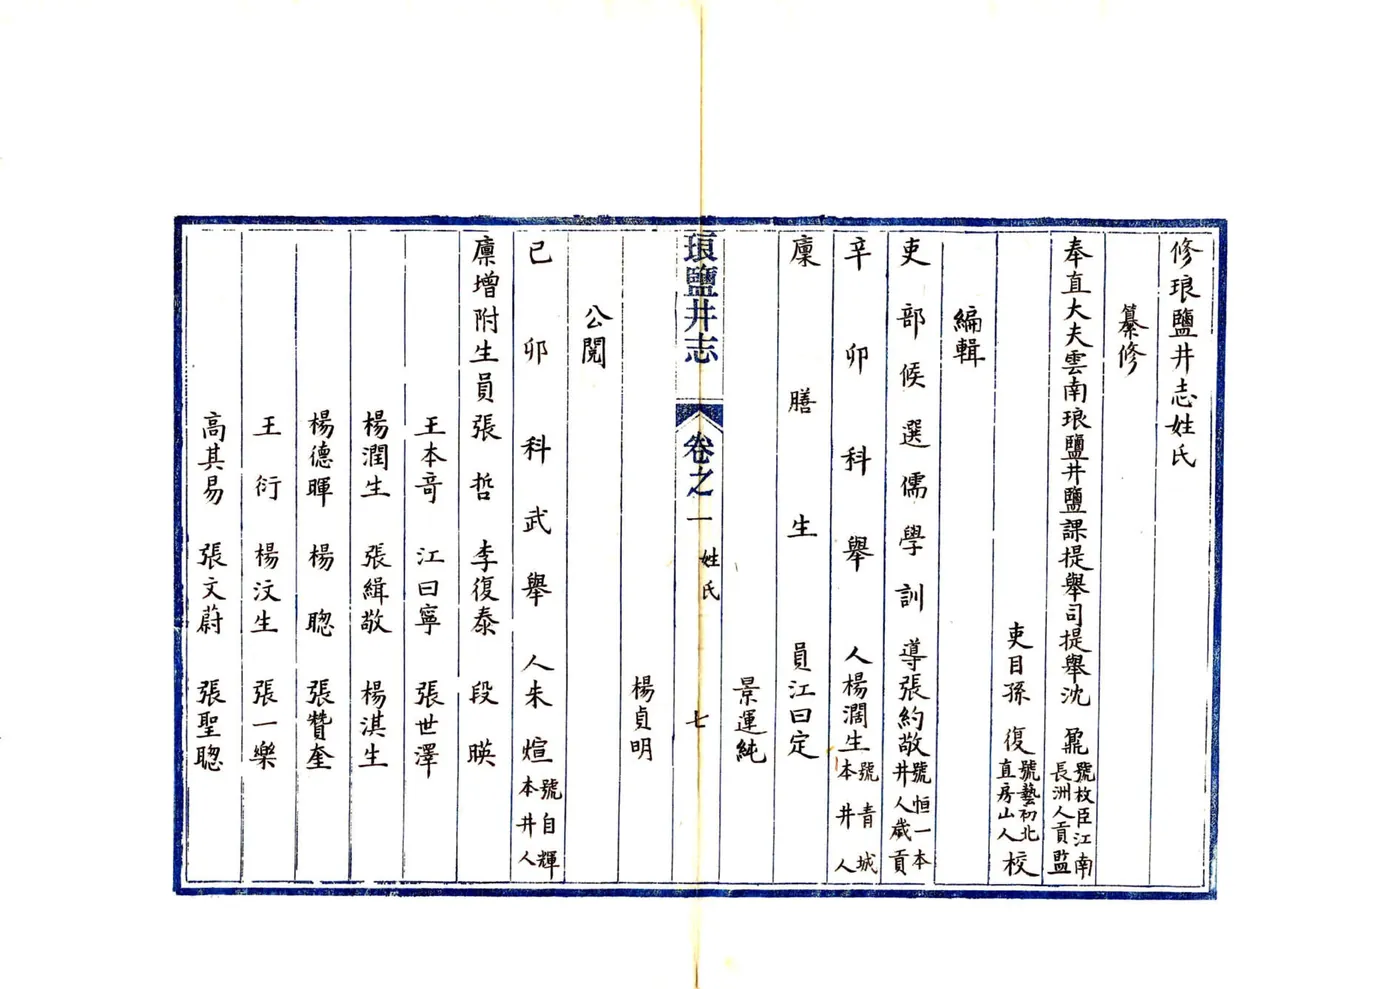 修琅鹽井志姓氏
纂修
奉直大夫雲南琅鹽井鹽課提舉司提舉沈鼐號枚臣江南長洲人貢監
吏目孫復號藝初北直房山人校
編輯
吏部候選儒學訓導張約敬號恒一本井人歲貢
辛卯科舉人楊濶生號青城本井人
廩膳生員江曰定
景運純
琅鹽井志 卷之一 姓氏 七
楊貞明
公閱
己卯科武舉人朱煊號自輝本井人
廩增附生員張哲 李復泰 段暎
王本竒 江曰寧 張世澤
楊潤生 張緝敬 楊淇生
楊德暉 楊聰 張贊奎
王衍 楊汶生 張一樂
高其易 張文蔚 張聖聰